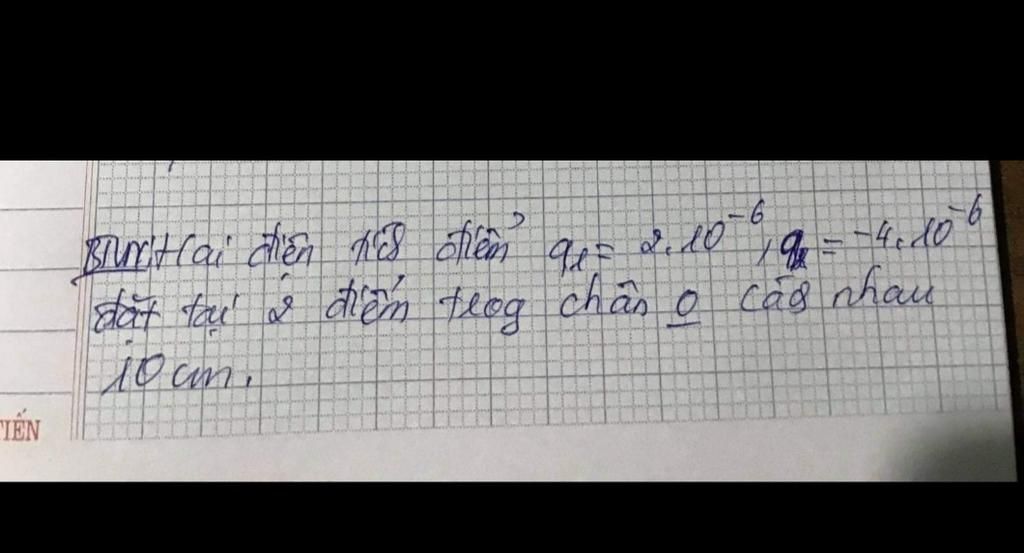 Hai điện tíc8 điểm q₁ = 2.10⁻⁶, q₂ = -4.10⁻⁶
đặt tại 2 điểm trog chân o cá8 nhau
10 cm.
TIẾN